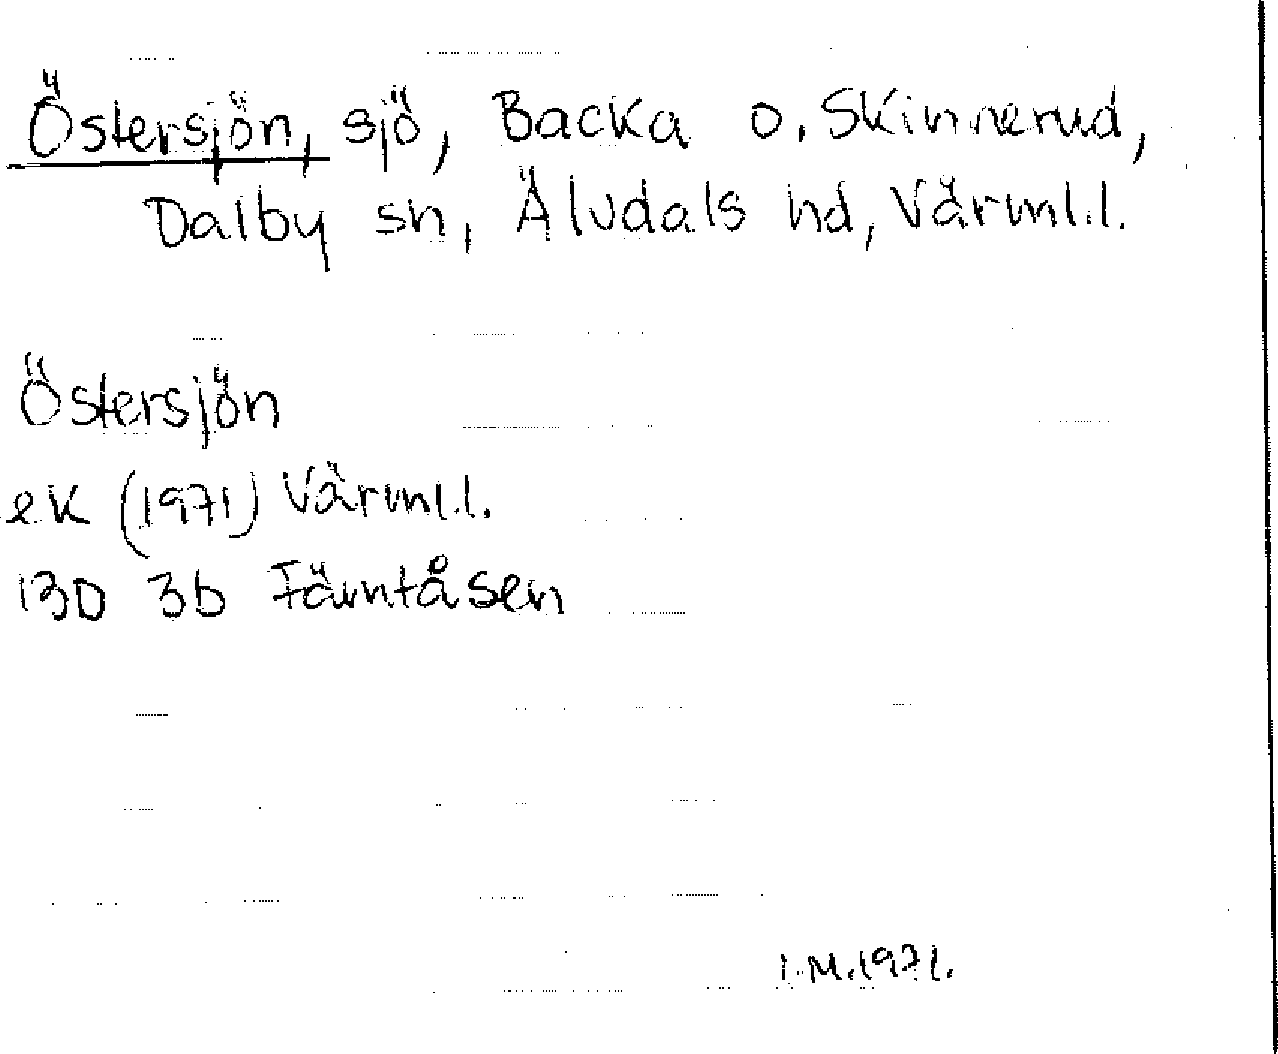 Östersjön, sjö, Backa o. Skinnerud,
Dalby sn, Älvdals hd, Värml.l.
Östersjön
ek (1971) Värml.l.
13D 3b Fämtåsen
I.M.1971.